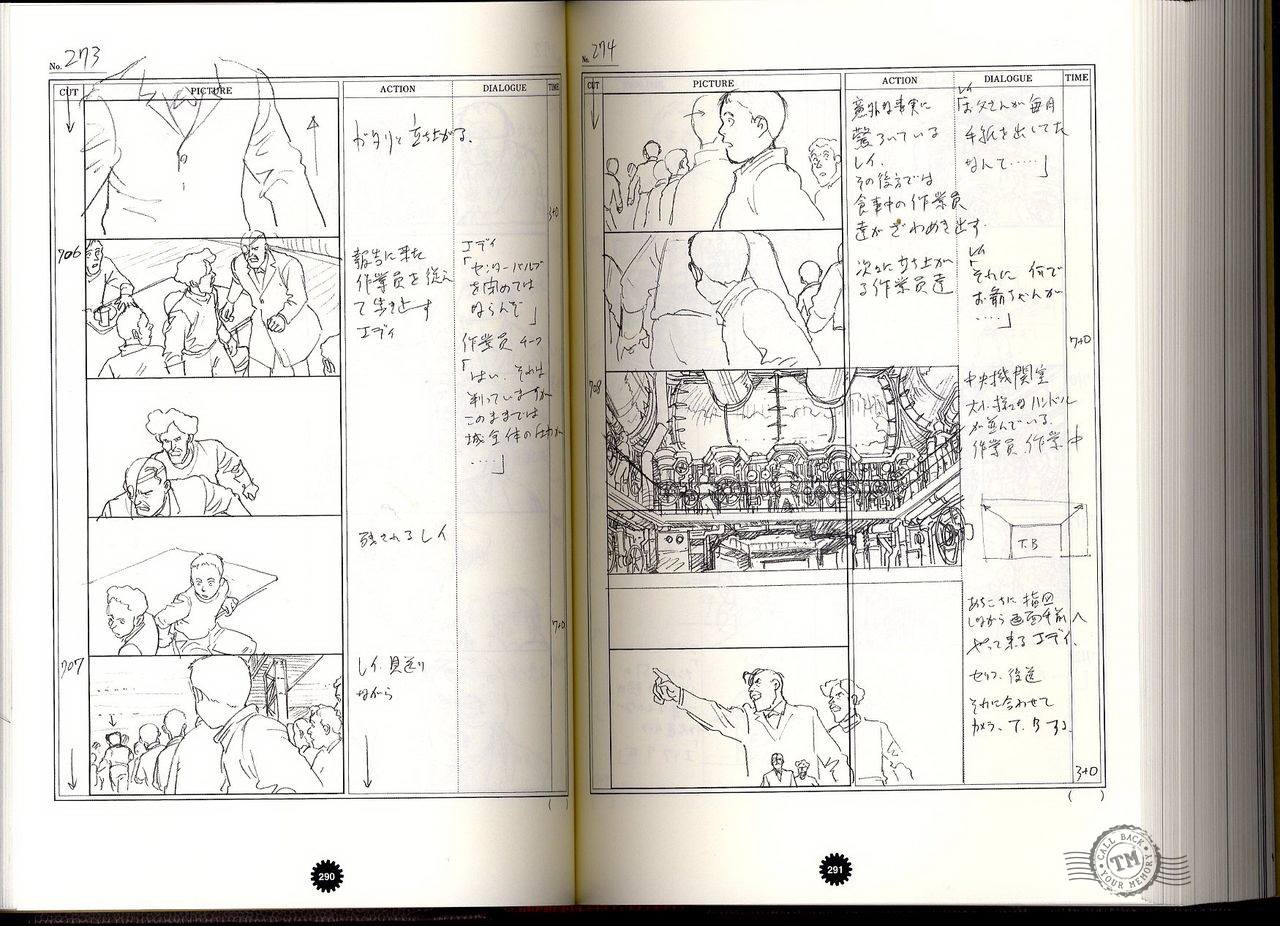 No. 273
CUT
PICTURE
ACTION
DIALOGUE
TIME
ガタリと立ち上がる。
3+0
706
報告に来た
作業員を従え
て歩き出す
エディ
エディ
「センターバルブ
を閉めては
ならんぞ」
作業員チーフ
「はい、それは
判っていますが
このままでは
城全体の圧力が
‥‥」
残されるレイ
7+0
707
レイ、見送り
ながら
( )
290
No. 274
CUT
PICTURE
ACTION
DIALOGUE
TIME
意外な事実に
驚ろいている
レイ。
その後方では
食事中の作業員
達がざわめき出す。
レイ
「お父さんが毎月
手紙を出してた
なんて‥‥‥」
次々に立ち上が
る作業員達
レイ
「それに 何で
お爺ちゃんが
‥‥」
7+0
708
中央機関室
ハンドル
が並んでいる。
作業員 作業中
T.B
あちこちに 指図
しながら画面手前へ
やって来るエディ。
セリフ、後送
それに合わせて
カメラ、T.Bする。
3+0
( )
291
CALL BACK
TM
YOUR MEMORY